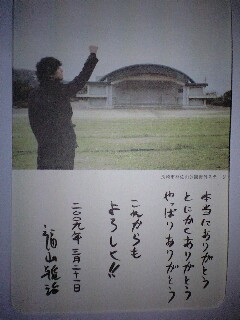 本当にありがとう
とにかくありがとう
やっぱりありがとう
これからも
よろしく!!
二〇〇九年 三月二十一日
福山雅治